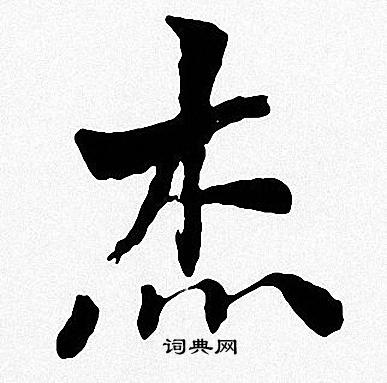 杰
词典网